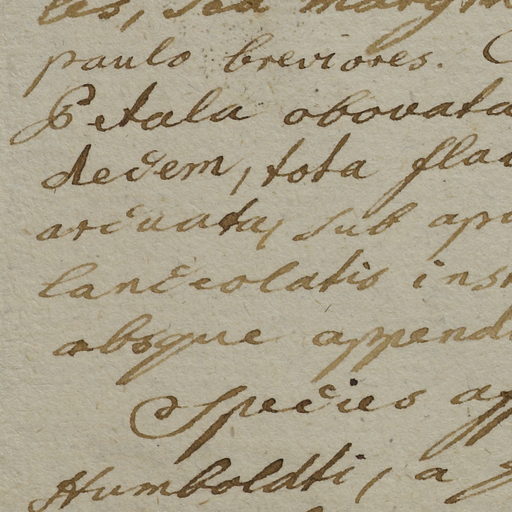 tes, sed margin
paulo breviores.
Petala obovata
decem, tota flav
arcuata, sub ap
lanceolatis ins
absque append
Species aff
Humboldti, a